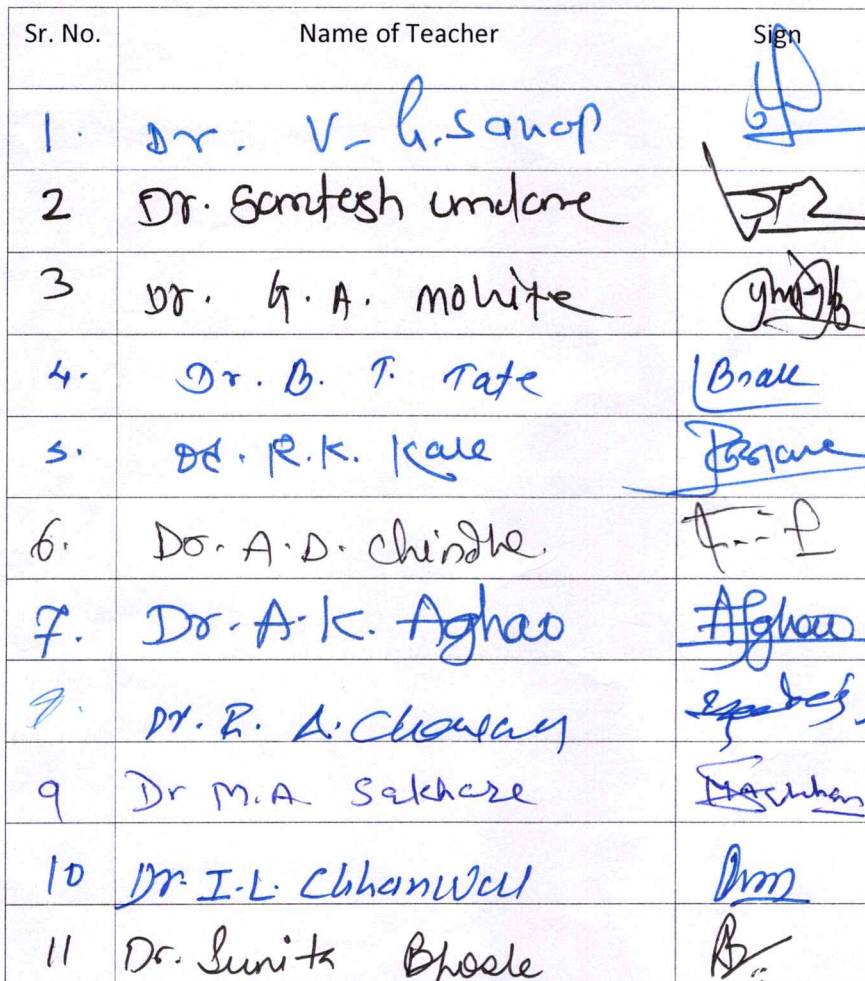 Sr. No. Name of Teacher Sign
1. Dr. V. G. Sanap
2 Dr. Santosh Undare
3 Dr. G. A. Mohite
4. Dr. B. T. Tate
5. Dr. R.K. Kale
6. Dr. A.D. Chindhe.
7. Dr. A.K. Aghao Afghao
Dr. R. A. Chavan
9 Dr M.A Sakhare
10 Dr. I.L. Chhanwal
11 Dr. Sunita Bhosle